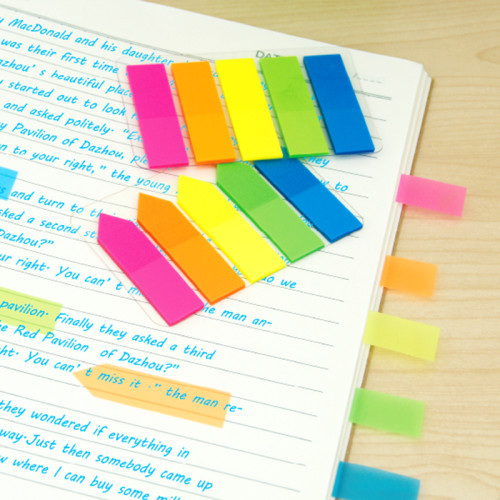 MacDonald and his daughter
was their first time
Dazhou's beautiful
started out to look
and asked politely. "E
Pavilion of Dazhou,
they
n to your right," the young
to
and turn to th
sked a second st
Dazhou?"
ur right. You can't mi
who we
the man an-
pavilion. Finally they asked a third
he Red Pavilion of Dazhou?"
ght. You can't miss it ." the man re-
they wondered if everything in
way. Just then somebody came up
w where I can buy some